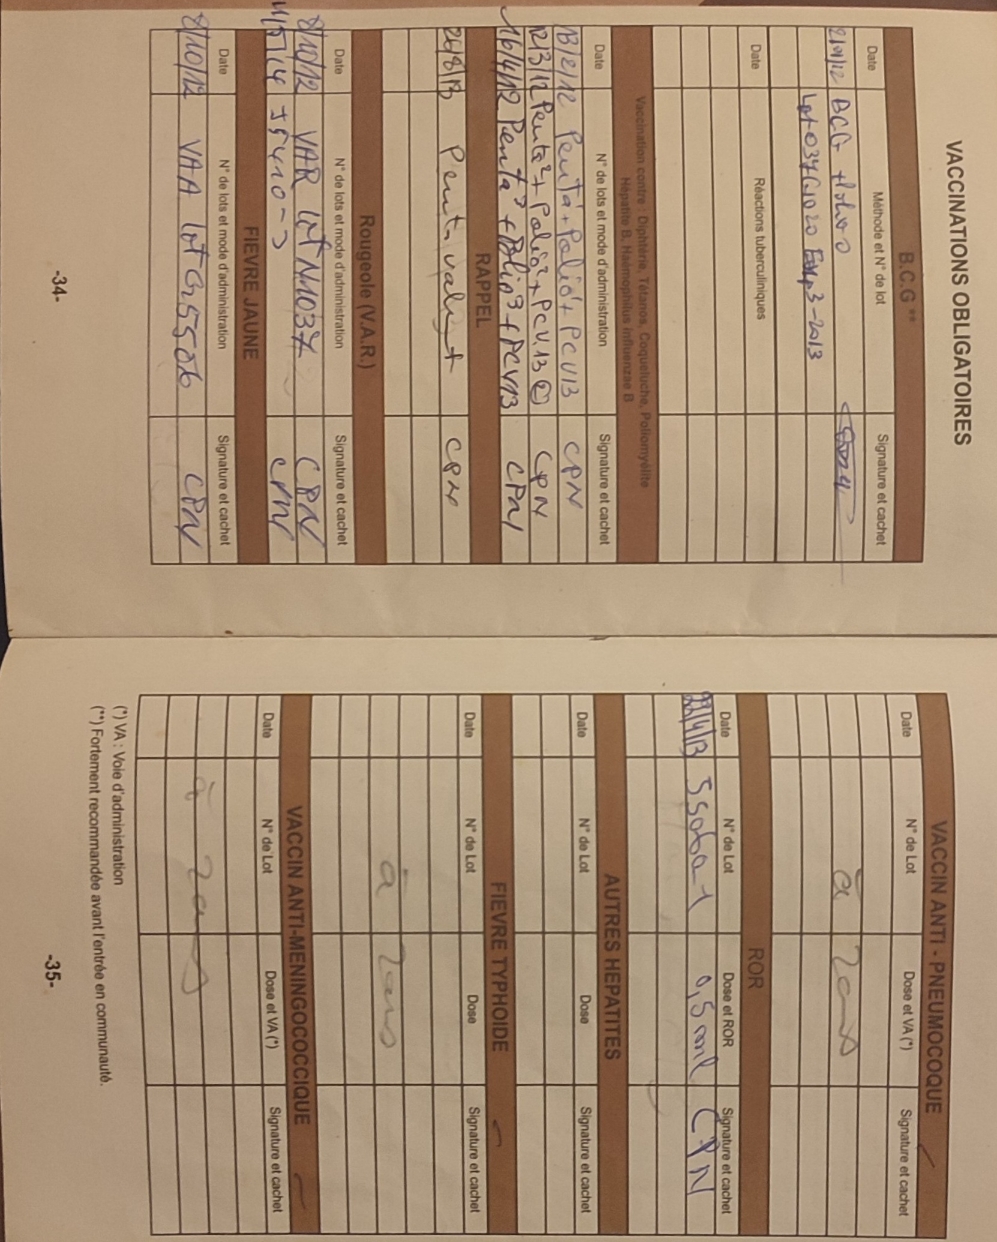 VACCINATIONS OBLIGATOIRES
B.C.G **
Date Méthode et N° de lot Signature et cachet
BCG + Polio 0
Lot 037G1020 Exp 3-2013
Date Réactions tuberculiniques
Vaccination contre : Diphtérie, Tétanos, Coqueluche, Poliomyélite
Hépatite B, Haémophilus Influenzae B
Date N° de lots et mode d'administration Signature et cachet
13/2/12 Penta1 + Polio1 + PCV13 CPN
12/3/12 Penta2 + Polio2 + PCV13 ② CPN
16/4/12 Penta3 + Polio3 + PCV13 CPN
RAPPEL
26/8/13 Pentavalent CPN
Rougeole (V.A.R.)
Date N° de lots et mode d'administration Signature et cachet
8/10/12 VAR lot CPN
CPN
FIEVRE JAUNE
Date N° de lots et mode d'administration Signature et cachet
8/10/12 VAA lot G5506 CPN
-34-
VACCIN ANTI - PNEUMOCOQUE
Date N° de Lot Dose et VA (*) Signature et cachet
à 2ans
ROR
Date N° de Lot Dose et ROR Signature et cachet
0,5ml CPN
AUTRES HEPATITES
Date N° de Lot Dose Signature et cachet
FIEVRE TYPHOIDE
Date N° de Lot Dose Signature et cachet
à 2ans
VACCIN ANTI-MENINGOCOCCIQUE
Date N° de Lot Dose et VA (*) Signature et cachet
à 2ans
(*) VA : Voie d'administration
(**) Fortement recommandée avant l'entrée en communauté.
-35-